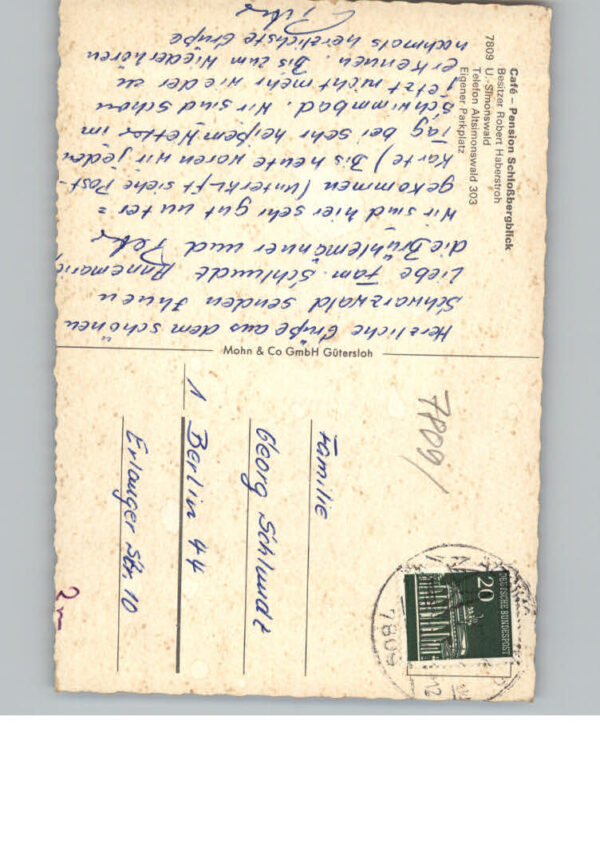 Café – Pension Schloßbergblick
Besitzer Robert Haberstroh
7809 U.-Simonswald
Telefon Altsimonswald 303
Eigener Parkplatz
Herzliche Grüße aus dem schönen
Schwarzwald senden Ihnen
Liebe Fam. Schlundt Annemarie,
die Brühlemänner und Peter
Wir sind hier sehr gut unter=
gekommen (unterk.ft siehe Post-
Karte) Bis heute waren wir jeden
Tag bei sehr heißem Wetter im
Schwimmbad. Wir sind schon
jetzt nicht mehr wieder zu
erkennen. Bis zum Wiederhören
nochmals herzlichste Grüße
Peter
Mohn & Co GmbH Gütersloh
7809/
20
DEUTSCHE BUNDESPOST
7809
12
Familie
Georg Schlundt
1 Berlin 44
Erlanger Str. 10
2m